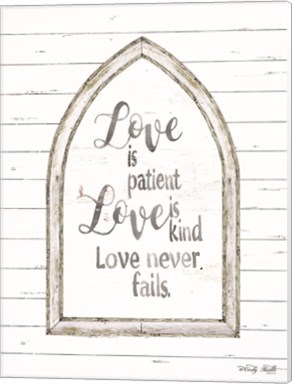 Love
is
patient
Love is
kind
Love never
fails.